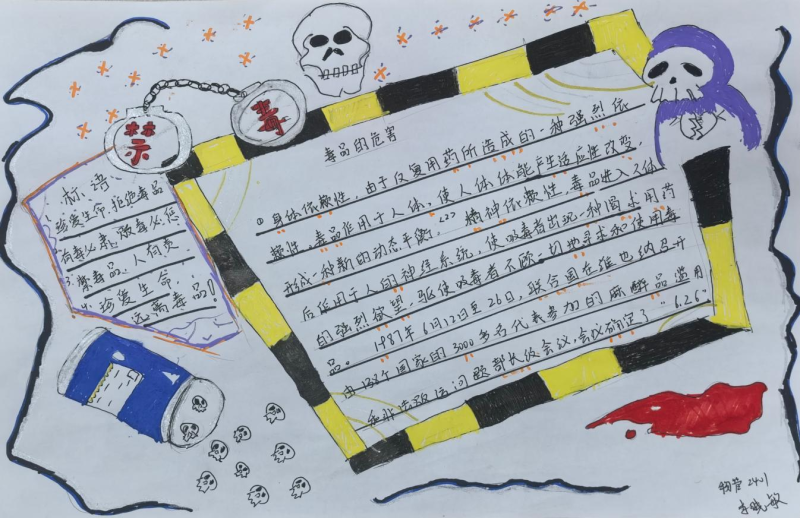 禁
毒
标语
1、珍爱生命,拒绝毒品
2、有毒必肃,贩毒必惩
3、禁毒品、人有责
4、珍爱生命,
远离毒品!
毒品的危害
①身体依赖性,由于反复用药所造成的一种强烈依
赖性。毒品作用于人体、使人体体能产生适应性改变,
形成一种新的动态平衡,<2>精神依赖性,毒品进入人体
后作用于人的神经系统,使吸毒者出现一种渴求用药
的强烈欲望,驱使吸毒者不顾一切地寻求和使用毒
品。1987年6月12日至26日,联合国在维也纳召开
由138个国家的3000多名代表参加的麻醉品滥用
和非法贩运问题部长级会议,会议确定了“6.26”
2401
李晓敏